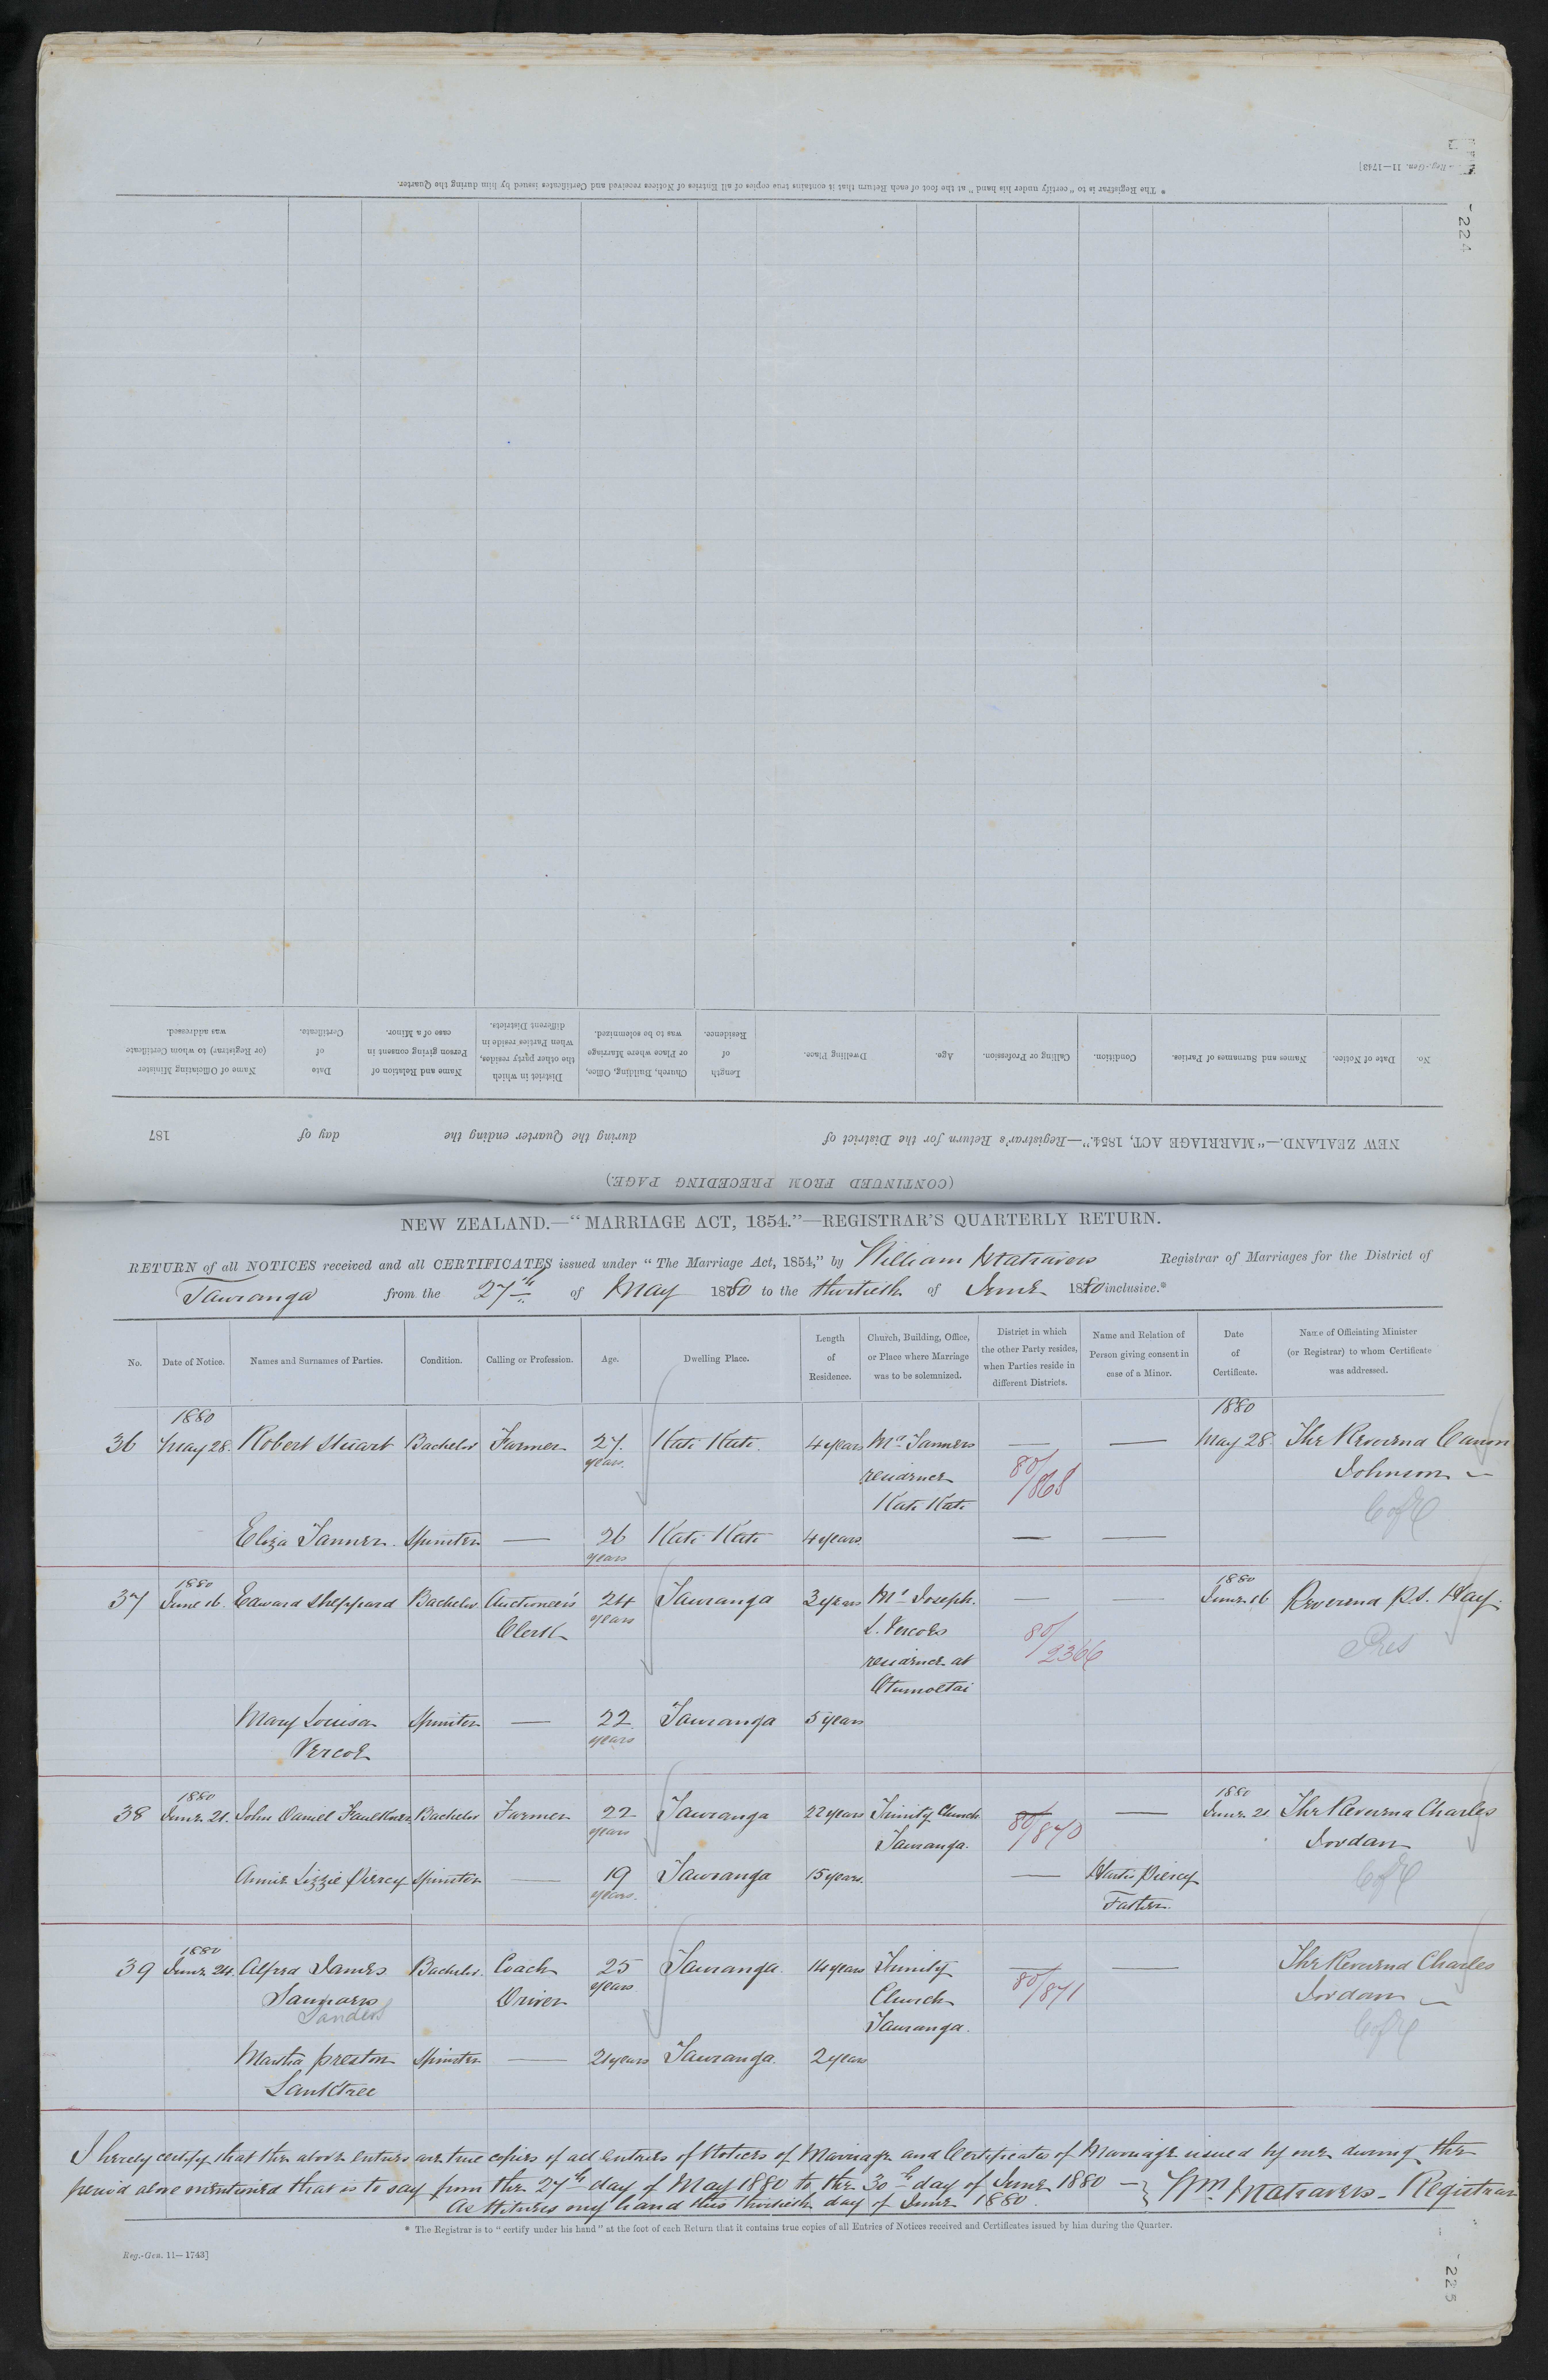 Reg.-Gen. 11—1743]
* The Registrar is to "certify under his hand" at the foot of each Return that it contains true copies of all Entries of Notices received and Certificates issued by him during the Quarter.
224
No.
Date of Notice.
Names and Surnames of Parties.
Condition.
Calling or Profession.
Age.
Dwelling Place.
Length of Residence.
Church, Building, Office, or Place where Marriage was to be solemnized.
District in which the other party resides, when Parties reside in different Districts.
Name and Relation of Person giving consent in case of a Minor.
Date of Certificate.
Name of Officiating Minister (or Registrar) to whom Certificate was addressed.
NEW ZEALAND.—"MARRIAGE ACT, 1854."—Registrar's Return for the District of during the Quarter ending the day of 187
(CONTINUED FROM PRECEDING PAGE.)
NEW ZEALAND.—"MARRIAGE ACT, 1854."—REGISTRAR'S QUARTERLY RETURN.
RETURN of all NOTICES received and all CERTIFICATES issued under "The Marriage Act, 1854," by William Matravers Registrar of Marriages for the District of
Tauranga from the 27th of May 1880 to the thirtieth of June 1880 inclusive.*
No.
Date of Notice.
Names and Surnames of Parties.
Condition.
Calling or Profession.
Age.
Dwelling Place.
Length of Residence.
Church, Building, Office, or Place where Marriage was to be solemnized.
District in which the other Party resides, when Parties reside in different Districts.
Name and Relation of Person giving consent in case of a Minor.
Date of Certificate.
Name of Officiating Minister (or Registrar) to whom Certificate was addressed.
1880 1880
36 May 28. Robert Stuart Bachelor Farmer 27 Kati Kati 4 years Mr. Tanners — — May 28 The Reverend Canon
years. residence 80/868 Johnson —
Kati Kati C of E
Eliza Tanner Spinster — 26 Kati Kati 4 years — —
years
1880 1880
37 June 16. Edward Sheppard Bachelor Auctioneer's 24 Tauranga 3 years Mr. Joseph — — June 16 Reverend R.S. Hay.
Clerk years L. Vercoes 80/2366 Pres
residence at
Otumoetai
Mary Louisa Spinster — 22 Tauranga 5 years
Vercoe years
1880 1880
38 June 21. John Daniel Faulkner Bachelor Farmer 22 Tauranga 22 years Trinity Church — — June 21 The Reverend Charles
years Tauranga. 80/870 Jordan
Annie Lizzie Piercy Spinster — 19 Tauranga 15 years. — Piercy C of E
years. Father.
1880
39 June 24. Alfred James Bachelor. Coach 25 Tauranga. 14 years Trinity — — The Reverend Charles
Saunders Driver years Church 80/871 Jordan —
Sanders Tauranga. C of E
Martha Preston Spinster — 21 years Tauranga. 2 years
Lanktree
I hereby certify that the above entries are true copies of all entries of Notices of Marriage and Certificates of Marriage issued by me during the
period above mentioned that is to say from the 27th day of May 1880 to the 30th day of June 1880 — } Wm. Matravers - Registrar
As Witness my hand this thirtieth day of June 1880.
* The Registrar is to "certify under his hand" at the foot of each Return that it contains true copies of all Entries of Notices received and Certificates issued by him during the Quarter.
Reg.-Gen. 11—1743]
225